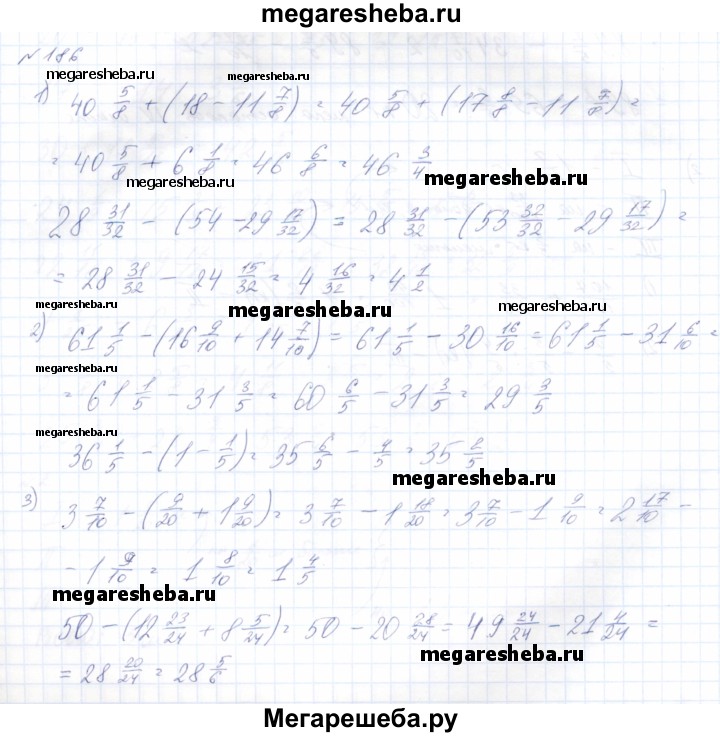 megaresheba.ru
№ 186
megaresheba.ru megaresheba.ru
1) 40 5/8 + (18 - 11 7/8) = 40 5/8 + (17 8/8 - 11 7/8) =
= 40 5/8 + 6 1/8 = 46 6/8 = 46 3/4
megaresheba.ru megaresheba.ru
28 31/32 - (54 - 29 17/32) = 28 31/32 - (53 32/32 - 29 17/32) =
= 28 31/32 - 24 15/32 = 4 16/32 = 4 1/2
megaresheba.ru megaresheba.ru megaresheba.ru
2) 61 1/5 - (16 9/10 + 14 7/10) = 61 1/5 - 30 16/10 = 61 1/5 - 31 6/10 =
= 61 1/5 - 31 3/5 = 60 6/5 - 31 3/5 = 29 3/5
megaresheba.ru megaresheba.ru
36 1/5 - (1 - 1/5) = 35 6/5 - 4/5 = 35 2/5
megaresheba.ru
3) 3 7/10 - (9/20 + 1 9/20) = 3 7/10 - 1 18/20 = 3 7/10 - 1 9/10 = 2 17/10 -
- 1 9/10 = 1 8/10 = 1 4/5
megaresheba.ru megaresheba.ru
50 - (12 23/24 + 8 5/24) = 50 - 20 28/24 = 49 24/24 - 21 4/24 =
= 28 20/24 = 28 5/6
megaresheba.ru
Мегарешеба.ру